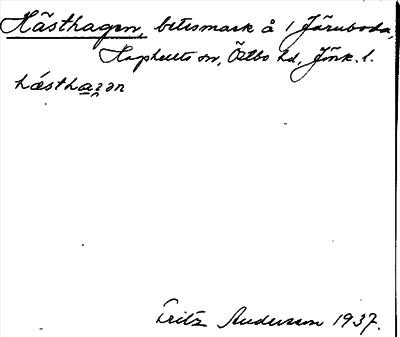 Hästhagen, betesmark å 1 Järuboda,
Hagshults sn, Östbo hd, Jönk. l.
hǽstha̲gən
Fritz Andersson 1937.